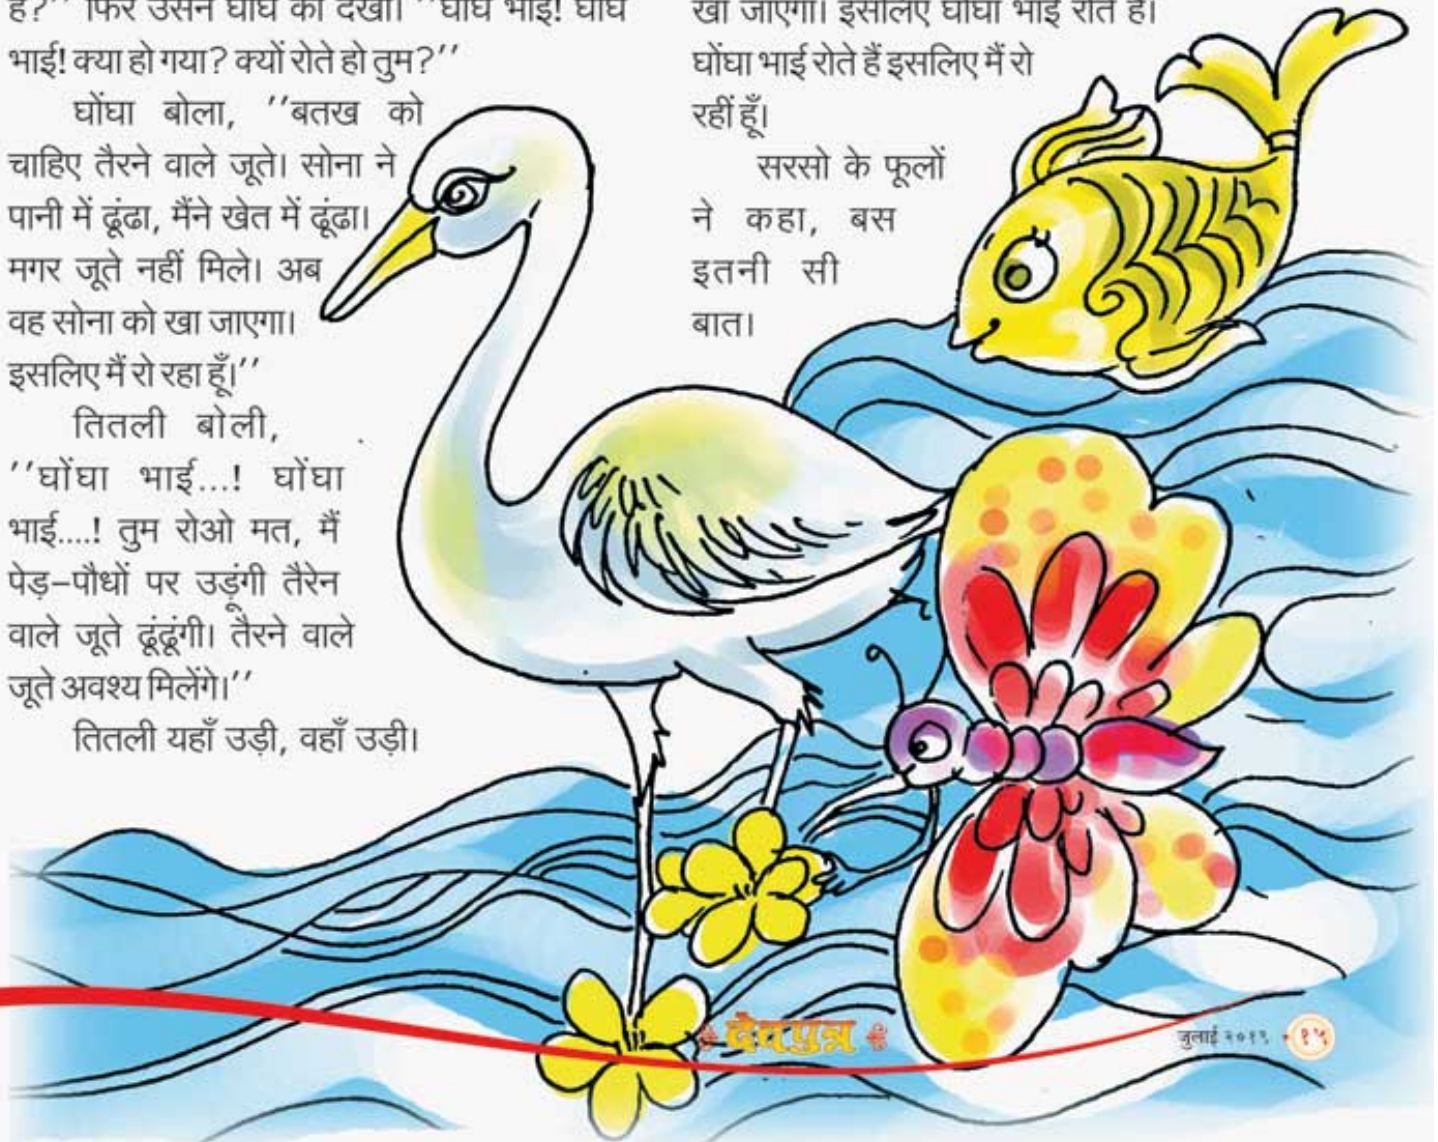 है?'' फिर उसने घोंघे को देखा। ''घोंघे भाई! घोंघे
भाई! क्या हो गया? क्यों रोते हो तुम?''
घोंघा बोला, ''बतख को
चाहिए तैरने वाले जूते। सोना ने
पानी में ढूंढा, मैंने खेत में ढूंढा।
मगर जूते नहीं मिले। अब
वह सोना को खा जाएगा।
इसलिए मैं रो रहा हूँ।''
तितली बोली,
''घोंघा भाई...! घोंघा
भाई....! तुम रोओ मत, मैं
पेड़-पौधों पर उड़ूंगी तैरेन
वाले जूते ढूंढूंगी। तैरने वाले
जूते अवश्य मिलेंगे।''
तितली यहाँ उड़ी, वहाँ उड़ी।
खा जाएगा। इसलिए घोंघा भाई रोते हैं।
घोंघा भाई रोते हैं इसलिए मैं रो
रहीं हूँ।
सरसो के फूलों
ने कहा, बस
इतनी सी
बात।
देवपुत्र
जुलाई २०१९ • १५